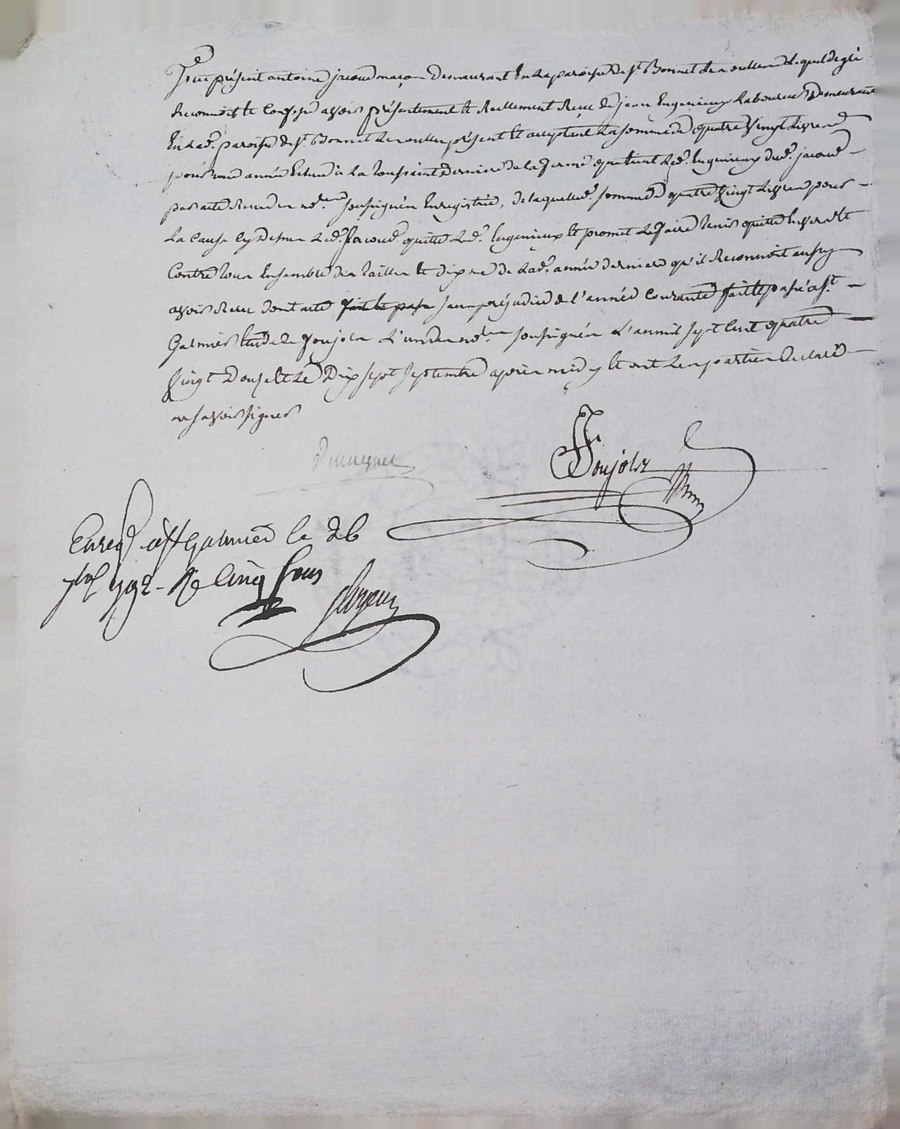 Fut présent antoine jacoud maçon demeurant En La paroisse de st Bonnet Les oulles Lequel de gré
Reconnoit Et Confesse avoir présentement Et Reellement Reçu de jean Engenieux Laboureur Demeurant
En Lade. paroisse de st Bonnet Les oulles présent Et acceptant La somme de quatre vingt Livres
pour une année Echue à La toussaint derniere de La ferme que tient Led. Engenieux dud. jacoud
par acte Reçu des nores soussignés Enregistré, de laquelle somme de quatre vingt Livres pour
La Cause cy dessus Led. jacoud quitte Led. Engenieux Et promet Le faire tenir quitte Envers Et
Contre tous Ensemble des tailles Et dixme de Lad. année derniere qu'il Reconnoit aussy
avoir Reçu dont acte fait Et passé sans préjudice de l'année Courante fait Et passé a st
Galmier Etude de Poujols L'un des nores soussignés L'an mil sept Cent quatre
vingt Douze Et Le Dix sept septembre après midy Et ont Les parties declaré
ne savoir signer
Poujols
Enreg à st Galmier le 26
7bre 1792 - R cinq sous